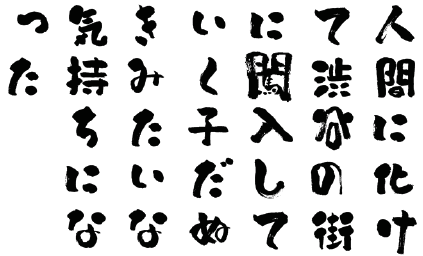 人間に化け
て渋谷の街
に闖入して
いく子だぬ
きみたいな
気持ちにな
った